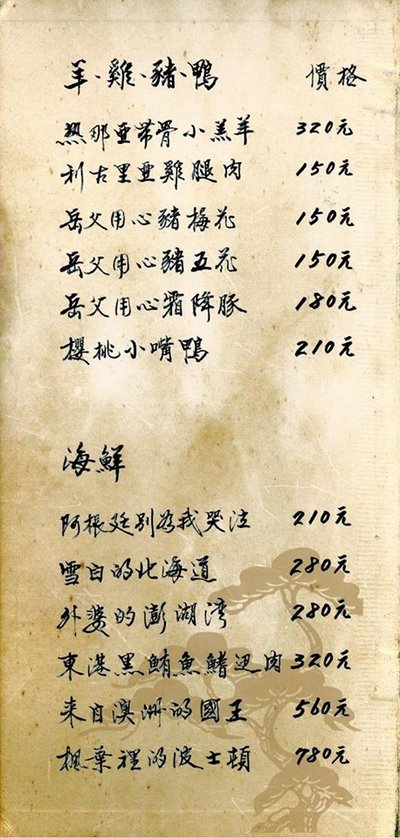 羊、雞、豬、鴨 價格
熱那亞帶骨小羔羊 320元
利古里亞雞腿肉 150元
岳父用心豬梅花 150元
岳父用心豬五花 150元
岳父用心霜降豚 180元
櫻桃小嘴鴨 210元
海鮮
阿根廷別為我哭泣 210元
雪白的北海道 280元
外婆的澎湖湾 280元
東港黑鮪魚鰭迴肉 320元
来自澳洲的國王 560元
楓葉裡的波士頓 780元